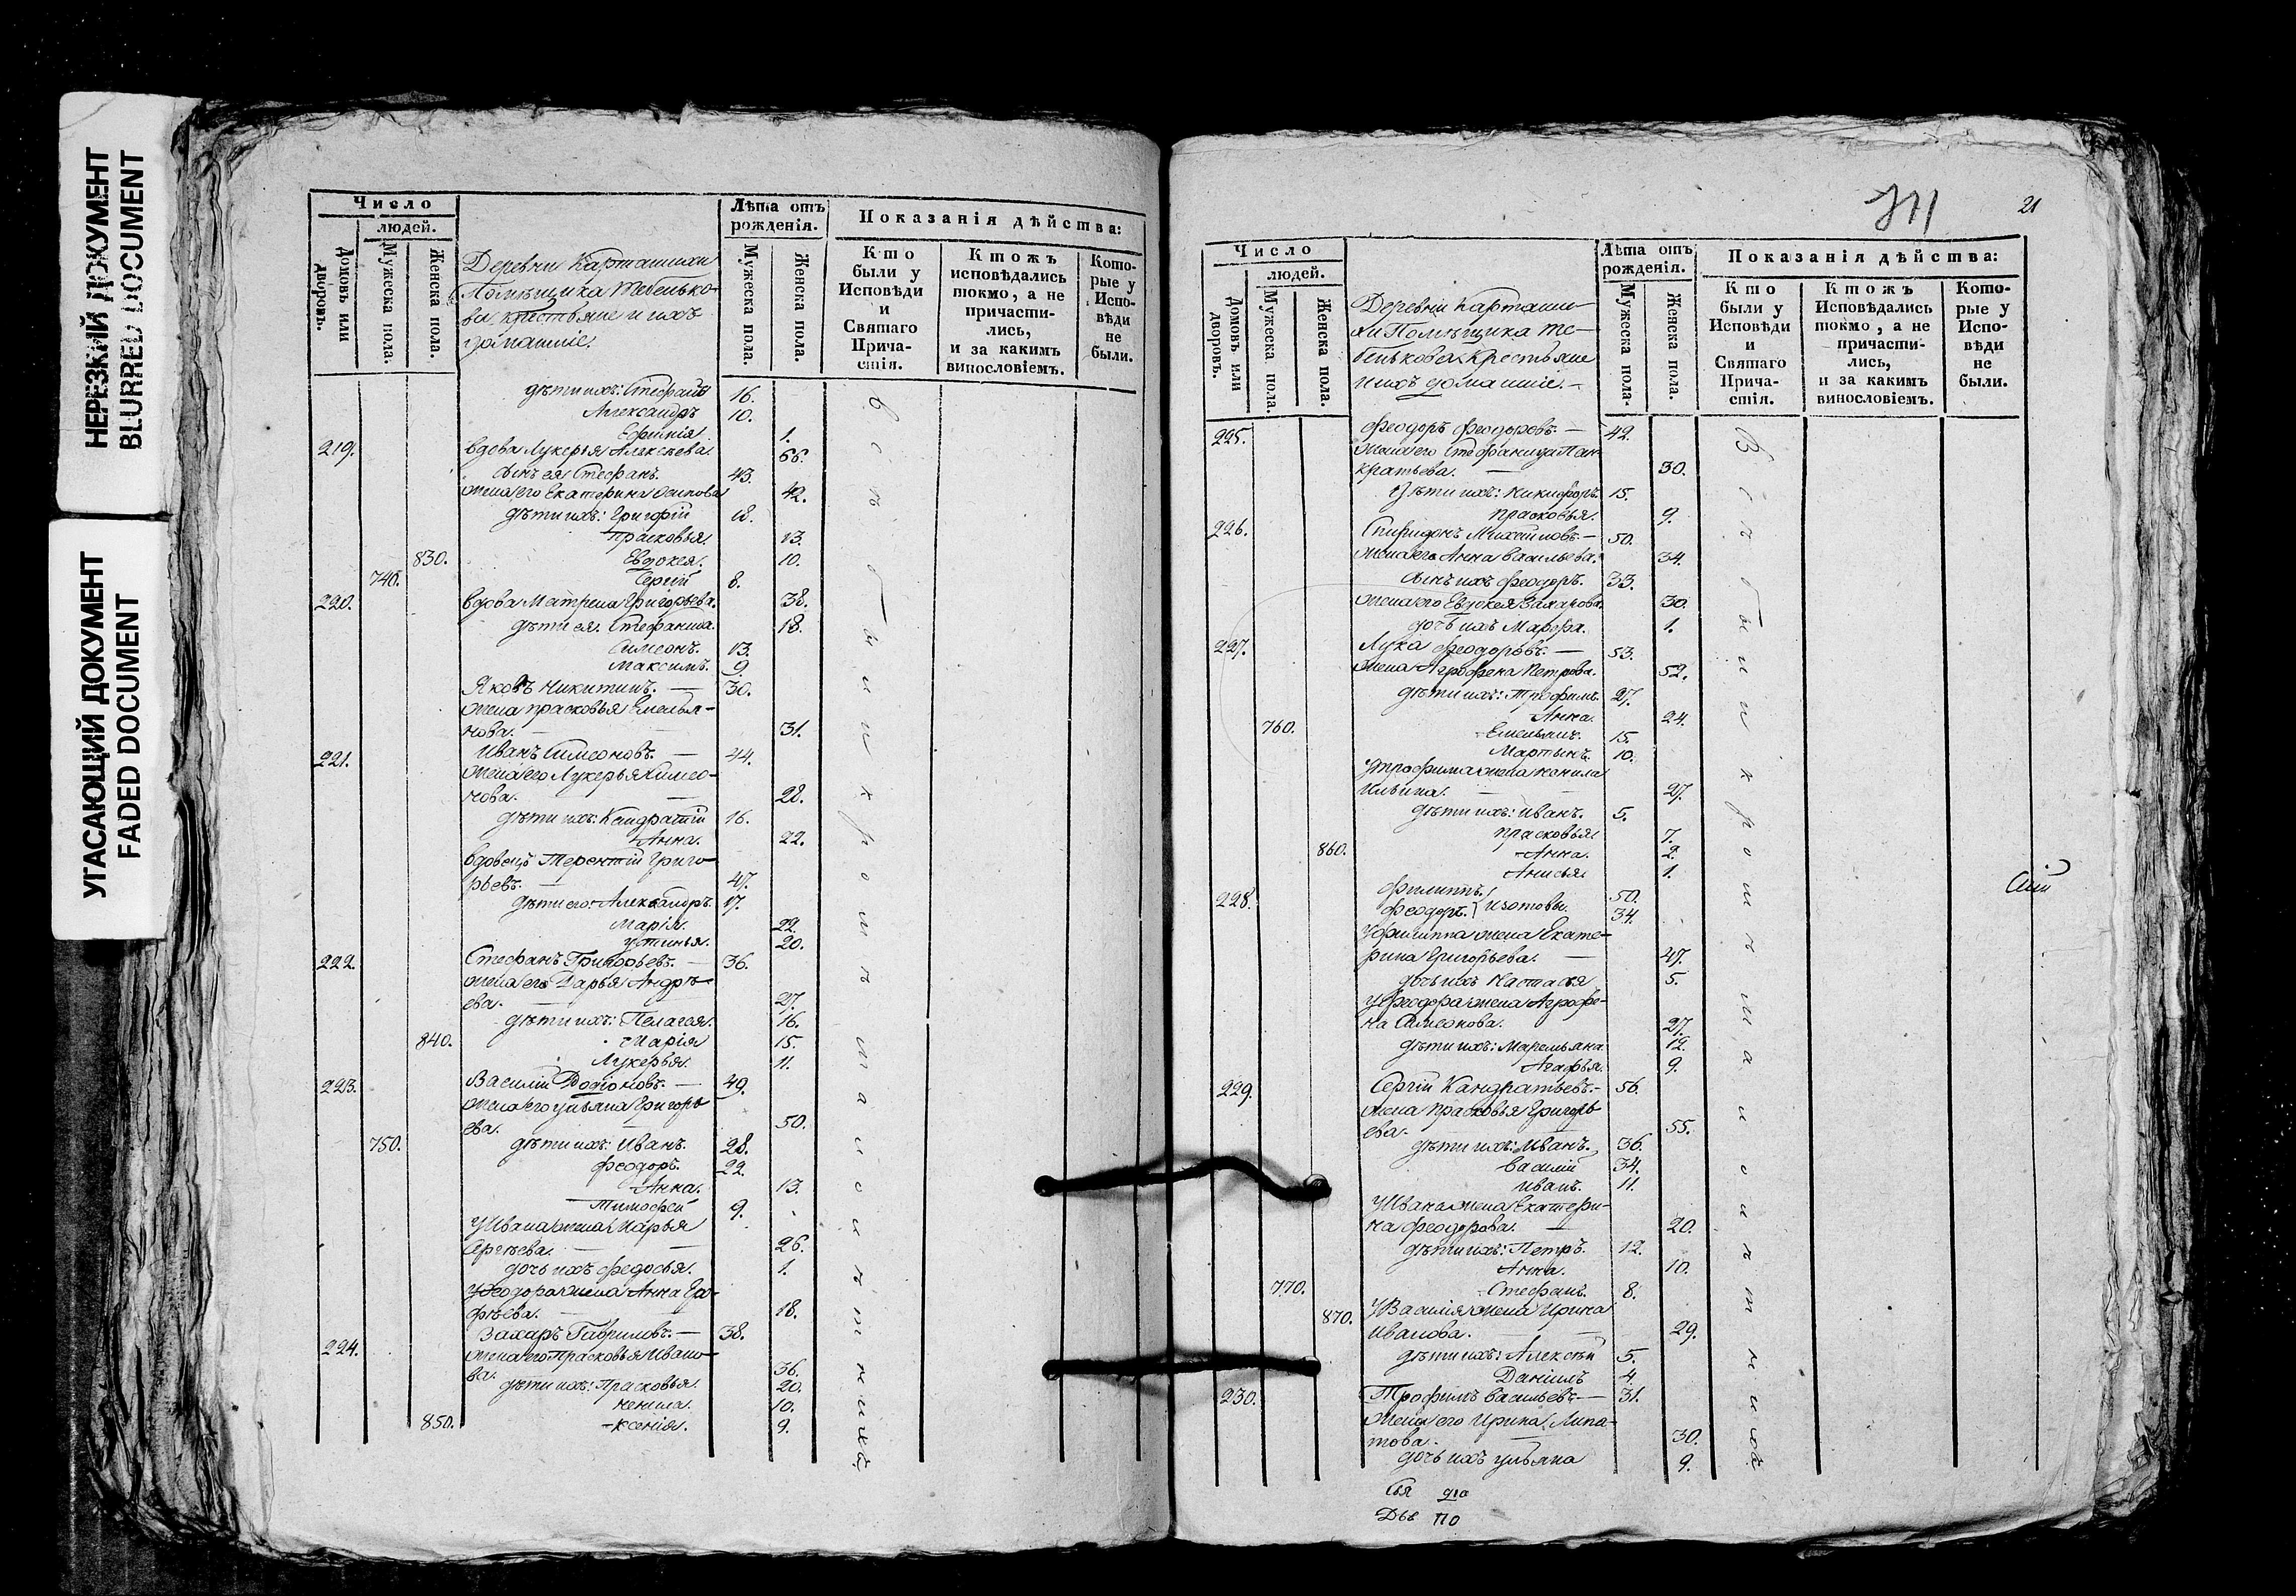 НЕРЕЗКИЙ ДОКУМЕНТ
BLURRED DOCUMENT
УГАСАЮЩИЙ ДОКУМЕНТ
FADED DOCUMENT
Число
людей.
Домовъ или дворовъ.
Мужеска пола.
Женска пола.
Деревни Карташихи
Помѣщика Тебенько-
ва крестьяне и ихъ
домашніе.
Лѣта отъ рожденія.
Мужеска пола.
Женска пола.
Показанія дѣйства:
Кто были у Исповѣди и Святаго Прича-стія.
Ктожъ исповѣдались токмо, а не причасти-лись, и за какимъ винословіемъ.
Кото-рые у Испо-вѣди не были.
дѣти ихъ: Стефанъ 16.
Александръ 10.
Ефимія 1.
219. вдова Лукерья Алексѣева 66.
сынъ ея Стефанъ. 43.
жена его Екатерина Осипова 42.
дѣти ихъ: Григорій 18.
Прасковья. 13.
830. Евдокея. 10.
740. Сергій 8.
220. вдова Матрена Григорьева. 38.
дѣти ея: Стефанида. 18.
Симеонъ. 13.
Максимъ. 9.
Яковъ Никитинъ. — 30.
жена Прасковья Емелья-
нова. — 31.
221. Иванъ Симеоновъ. — 44.
жена его Лукерья Симео-
нова. — 28.
дѣти ихъ: Кандратій 16.
Анна. 22.
вдовецъ Терентій Григо-
рьевъ. — 47.
дѣти его: Александръ. 17.
Марія. 22.
Устинья. 20.
222. Стефанъ Григорьевъ. — 36.
жена его Дарья Андрѣ-
ева. — 27.
дѣти ихъ: Пелагея. 16.
840. Марія 15.
Лукерья. 11.
223. Василій Родіоновъ. — 49.
жена его Ульяна Григорь
ева. — 50.
750. дѣти ихъ: Иванъ. 28.
Феодоръ. 22.
Анна. 13.
Тимофей 9.
У Ивана жена Марья
Сергѣева. — 26.
дочь ихъ Федосья. 1.
У Феодора жена Анна
18.
224. Захаръ Гавриловъ. — 38.
жена его Прасковья Ивано-
ва. 36.
дѣти ихъ: Прасковья. 20.
Ненила. 10.
850. Ксенія. 9.
Всѣ были къ роштѣ ша и о и ѣ т н ихъ.
21
Число
людей.
Домовъ или дворовъ.
Мужеска пола.
Женска пола.
Деревни Карташи-
хи Помѣщика Те-
бенькова Крестьяне
и ихъ домашніе. —
Лѣта отъ рожденія.
Мужеска пола.
Женска пола.
Показанія дѣйства:
Кто были у Исповѣди и Святаго Прича-стія.
Ктожъ Исповѣдались токмо, а не причасти-лись, и за какимъ винословіемъ.
Кото-рые у Испо-вѣди не были.
225. Феодоръ Феодоровъ. — 42.
жена его Стефанида Пан-
кратьева. — 30.
Дѣти ихъ: Никифоръ. 15.
Прасковья. 9.
226. Спиридонъ Михаиловъ. — 50.
жена его Анна Васильева. 34.
сынъ ихъ Феодоръ. 33.
жена его Евдокея Захарова. 30.
дочь ихъ Марфа. 1.
227. Лука Феодоровъ. — 53.
жена Агрофена Петрова. 52.
дѣти ихъ: Трофимъ. 27.
Анна. 24.
760. Емельянъ. 15.
Мартынъ. 10.
У Трофима жена Ненила
Ильина. — 27.
дѣти ихъ: Иванъ. 5.
Прасковья 7.
860. Анна. 2.
Анисья 1.
228. Филиппъ. 50.
Феодоръ. } Изотовы. 34.
У Филиппа жена Екате-
рина Григорьева. — 47.
дочь ихъ Настасья 5.
У Феодора жена Агрофе-
на Симеонова. 27.
дѣти ихъ: Маремьяна 12.
Агафья. 9.
229. Сергій Кандратьевъ. — 56.
жена Прасковья Григорь
ева. — 55.
дѣти ихъ: Иванъ. 36.
Василій 34.
Иванъ. 11.
У Ивана жена Екатери-
на Феодорова. — 20.
дѣти ихъ: Петръ. 12.
Анна. 10.
770. Стефанъ. 8.
870. У Василія жена Ирина
Иванова. — 29.
дѣти ихъ: Алексѣй 5.
Даніилъ 4.
230. Трофимъ Васильевъ — 31.
жена его Ирина Липа-
това. — 30.
дочь ихъ Ульяна 9.